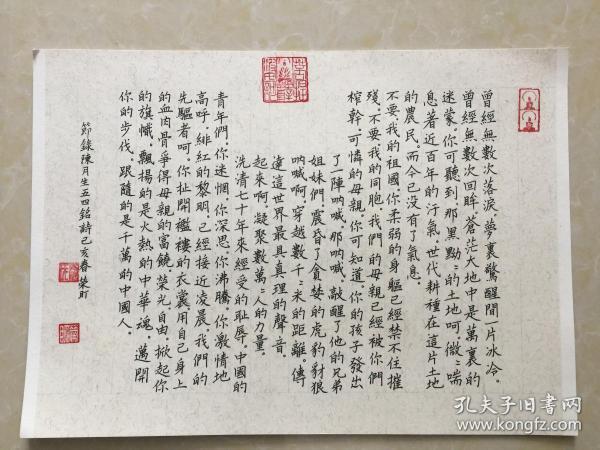 曾經無數次落淚.夢裏驚醒間一片冰冷.
曾經無數次回眸.蒼茫大地中是萬裏的
迷蒙.你可聽到.那黑黝=的土地呵.微=喘
息著近百年的汗氣.世代耕種在這片土地
的農民.而今已没有了氣息.
不要.我的祖國.你柔弱的身軀已經禁不住摧
殘.不要.我的同胞.我們的母親已經被你們
榨幹.可憐的母親.你可知道.你的孩子發出
了一陣吶喊.那吶喊.敲醒了他的兄弟
姐妹們.震昏了貪婪的虎豹豺狼
吶喊啊.穿越數千=米的距離.傳
達這世界最具真理的聲音.
起來啊.凝聚數萬=人的力量.
洗清七十年來經受的耻辱.中國的
青年們.你迷惘.你深思.你沸騰.你激情地
高呼.緋紅的黎明.已經接近凌晨.我們的
先驅者呵.你扯開襤褸的衣裳用自己身上
的血肉骨爭得母親的富饒.榮光自由.掀起你
的旗幟.飄揚的是火熱的中華魂.邁開
你的步伐.跟隨的是千萬的中國人.
節錄陳月生五四銘詩己亥春榮町
孔夫子旧书网
www.kongfz.com